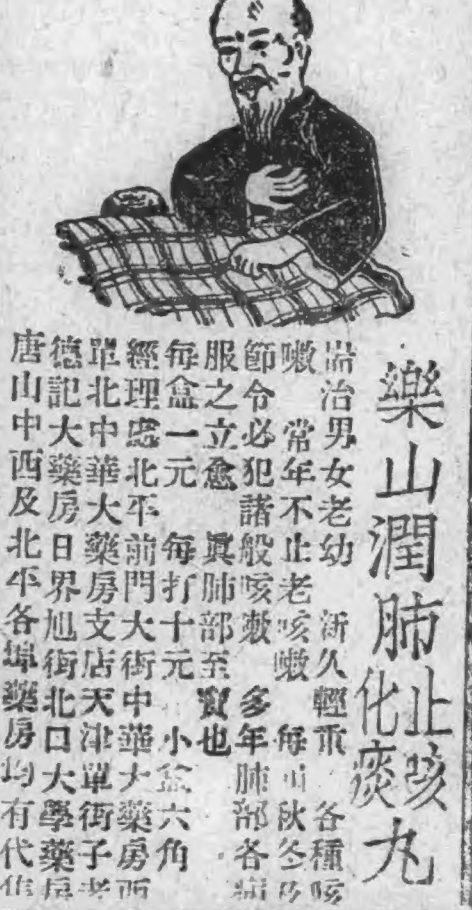 樂山潤肺止咳化痰丸
耑治男女老幼 新久輕重 各種咳
嗽 常年不止老咳嗽 每到秋冬及
節令必犯諸般咳嗽 多年肺部各病
服之立愈 眞肺部至寶也
每盒一元 每打十元 小盒六角
經理處北平前門大街中華大藥房西
單北中華大藥房支店天津單街子老
德記大藥房日界旭街北口大學藥房
唐山中西及北平各埠藥房均有代售